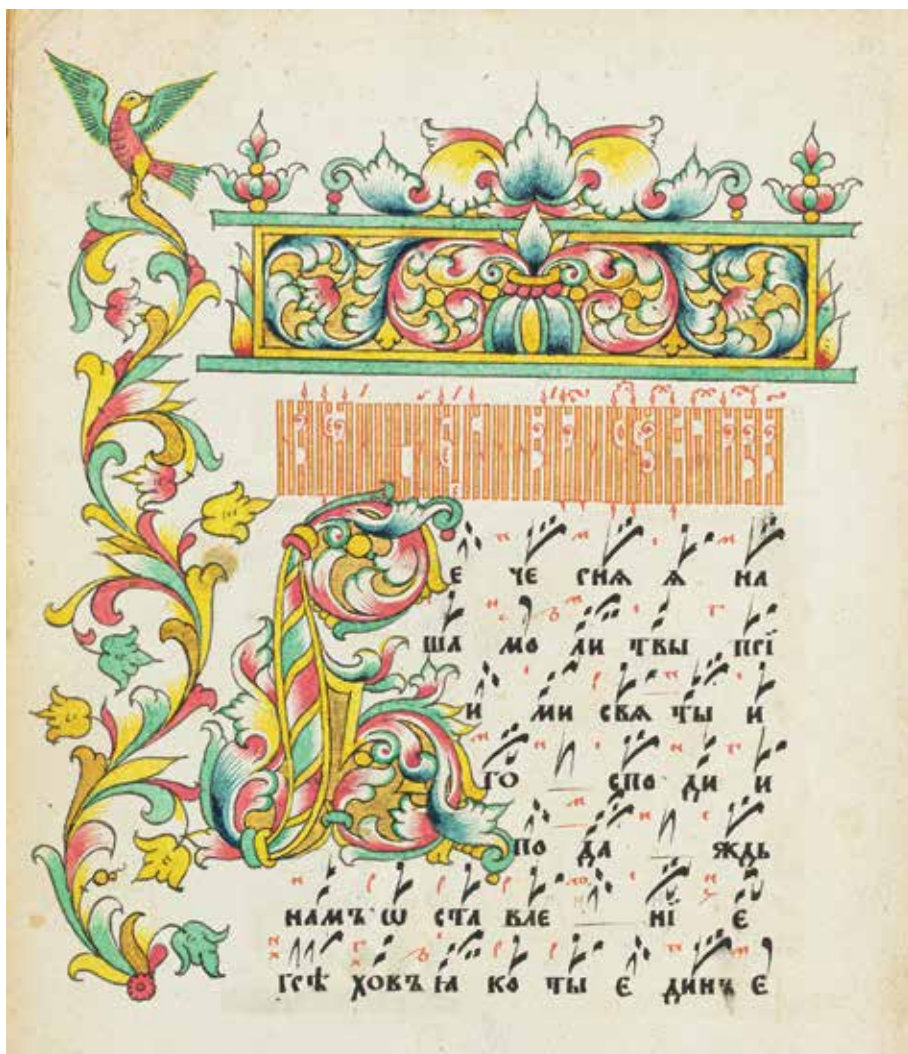 ВЕ ЧЕ РНѦ Ѧ НА
ША МО ЛИ ТВЫ ПРЇ
И МИ СВѦ ТЫ И
ГО СПО ДИ И
ПО ДА ЖДЬ
НАМЪ Ѡ СТА ВЛЕ НЇ Є
ГРѢ ХОВЪ Ꙗ КО ТЫ Є ДИНЪ Є